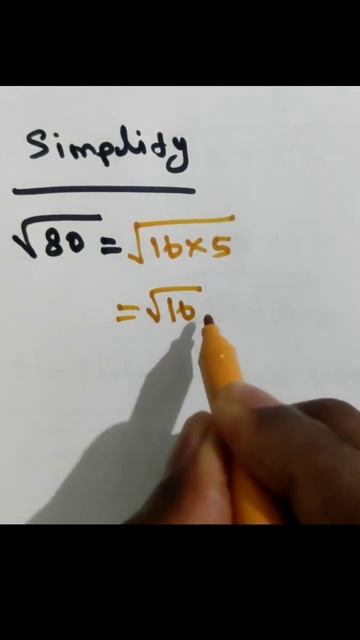 Simplify
√80 = √16×5
= √16